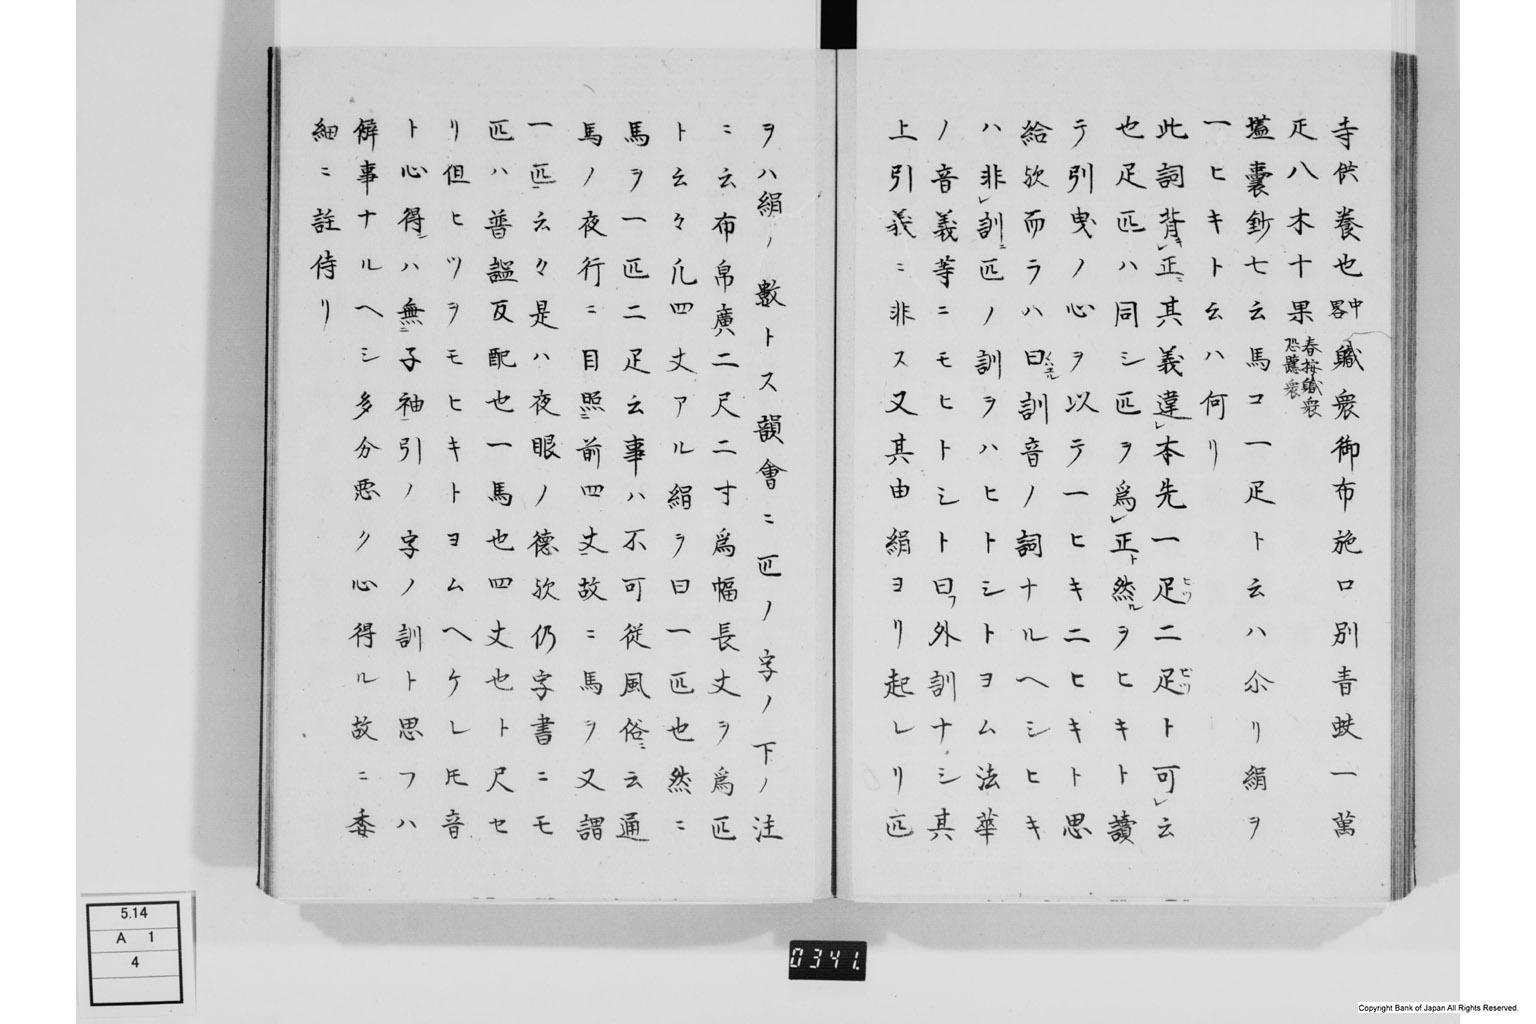 寺供養也中略職衆御布施口別青蚨一萬
疋八木十果春按職衆恐聴衆
壒囊鈔七云馬コ一疋ト云ハ尒リ絹ヲ
一ヒキト云ハ何リ
此詞背正ニ其義違本先一疋ヒツ二疋ヒツト可云
也疋匹ハ同シ匹ヲ爲正ト然ルヲヒキト讀
テ引曳ノ心ヲ以テ一ヒキ二ヒキト思
給欤而ラハ曰訓音ノ詞ナルヘシヒキ
ハ非訓ニ匹ノ訓ヲハヒトシトヨム法華
ノ音義等ニモヒトシト曰フ外訓ナシ其
上引義ニ非ス又其由絹ヨリ起レリ匹
ヲハ絹ノ數トス韻會ニ匹ノ字ノ下ノ注
ニ云布帛廣二尺二寸爲幅長丈ヲ爲匹
ト云々凢四丈アル絹ヲ曰一匹也然ニ
馬ヲ一匹二疋云事ハ不可従風俗ニ云通
馬ノ夜行ニ目照ニ前四丈故ニ馬ヲ又謂
一匹云々是ハ夜眼ノ德欤仍字書ニモ
匹ハ普謳反配也一馬也四丈也ト尺セ
リ但ヒツヲモヒキトヨムヘケレ𪜈音
ト心得ニハ無ニ子袖引ノ字ノ訓ト思フハ
僻事ナルヘシ多分悪ク心得ル故ニ委
細ニ註侍リ
5.14
A 1
4
0341.
Copyright Bank of Japan All Rights Reserved.